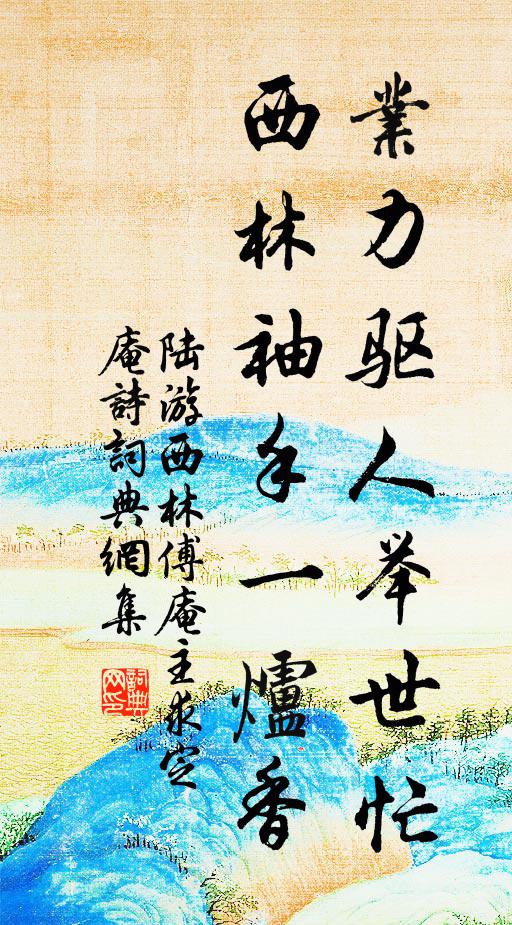 業力驱人举世忙
西林袖手一爐香
陆游西林傅庵主求定
庵詩詞典網集
詞典网印